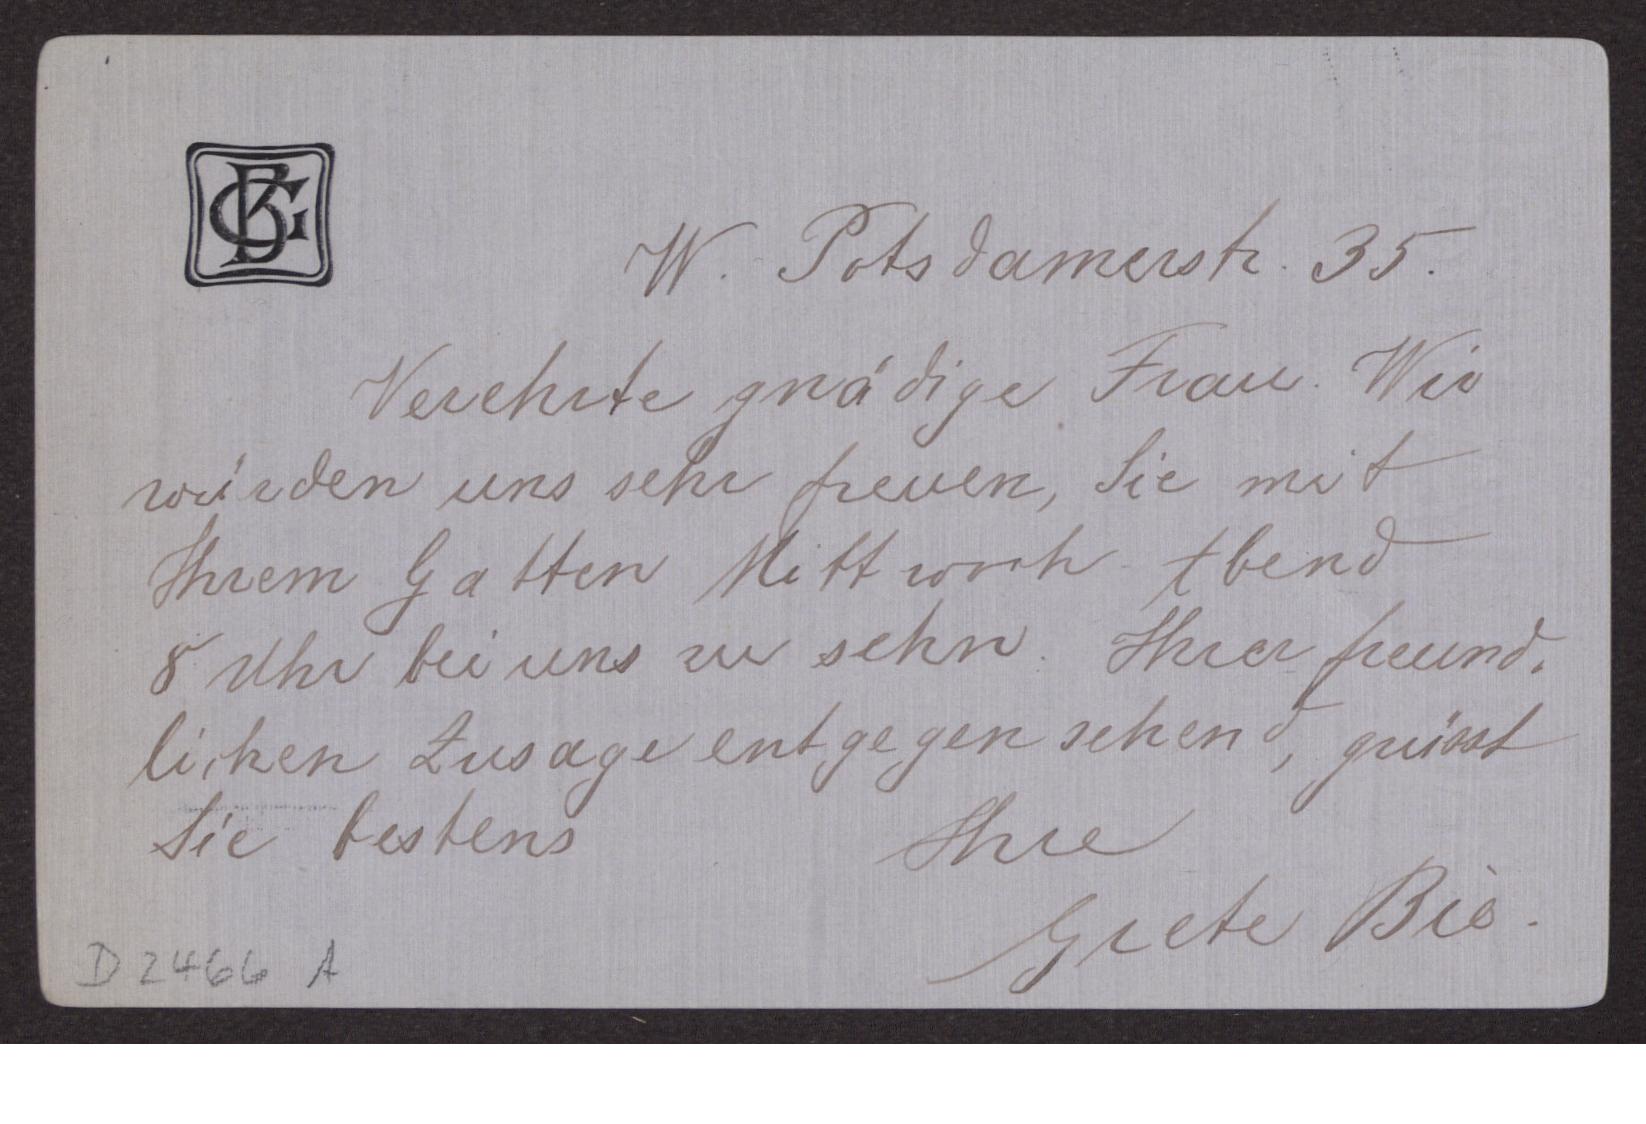 GB
W. Potsdamerstr. 35.
Verehrte gnädige Frau. Wir
würden uns sehr freuen, Sie mit
Ihrem Gatten Mittwoch Abend
8 Uhr bei uns zu sehn. Ihrer freund-
lichen Zusage entgegensehend, grüsst
Sie bestens Ihre
Grete Bie.
D 2466 A